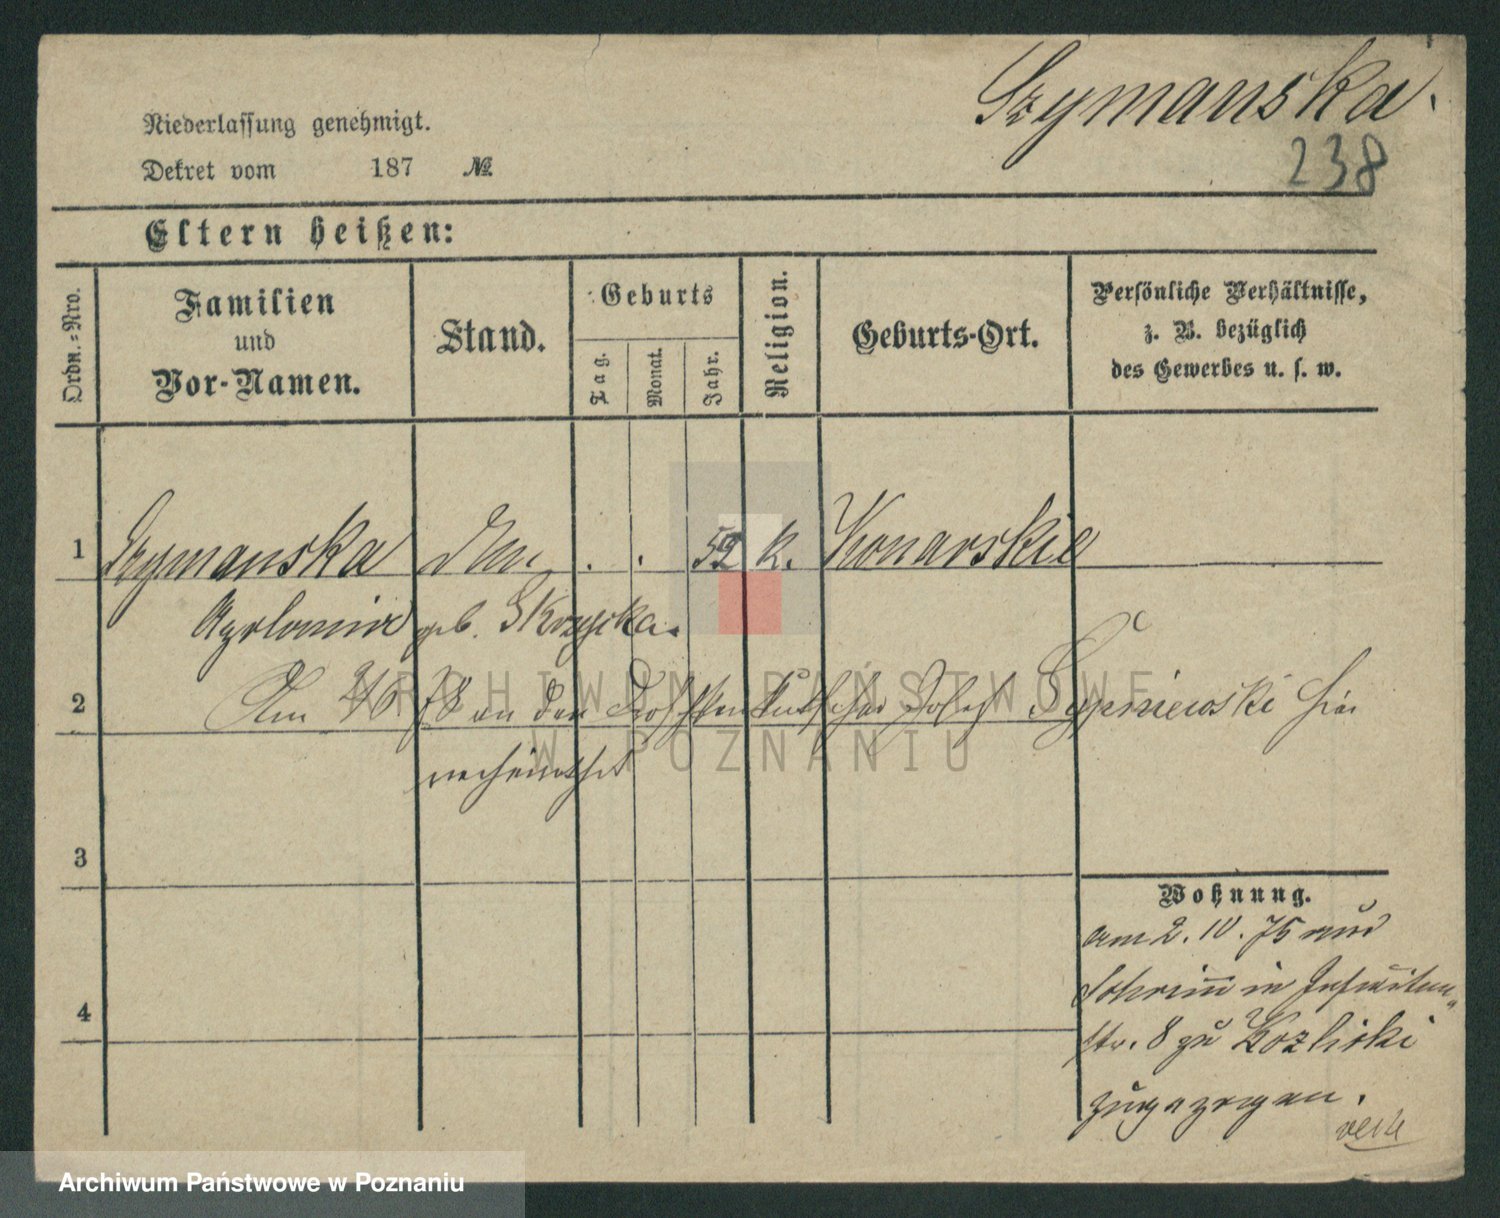 Szymanska.
238
Niederlassung genehmigt.
Dekret vom 187 №
Eltern heißen:
Ordn.-Nro.
Familien
und
Vor-Namen.
Stand.
Geburts
Tag.
Monat.
Jahr.
Religion.
Geburts-Ort.
Persönliche Verhältnisse,
z. B. bezüglich
des Gewerbes u. s. w.
1 Szymanska . . 52 k. Konarskie
Apolonia geb.
2 Am 2/6 78 an den Droschkenkutscher Josef hier
verheirathet
3
Wohnung.
am 2. IV. 75 aus
Schrimm in Jesuiten-
4
str. 8 zu Kozlicki
zugezogen.
ARCHIWUM PAŃSTWOWE
W POZNANIU
Archiwum Państwowe w Poznaniu